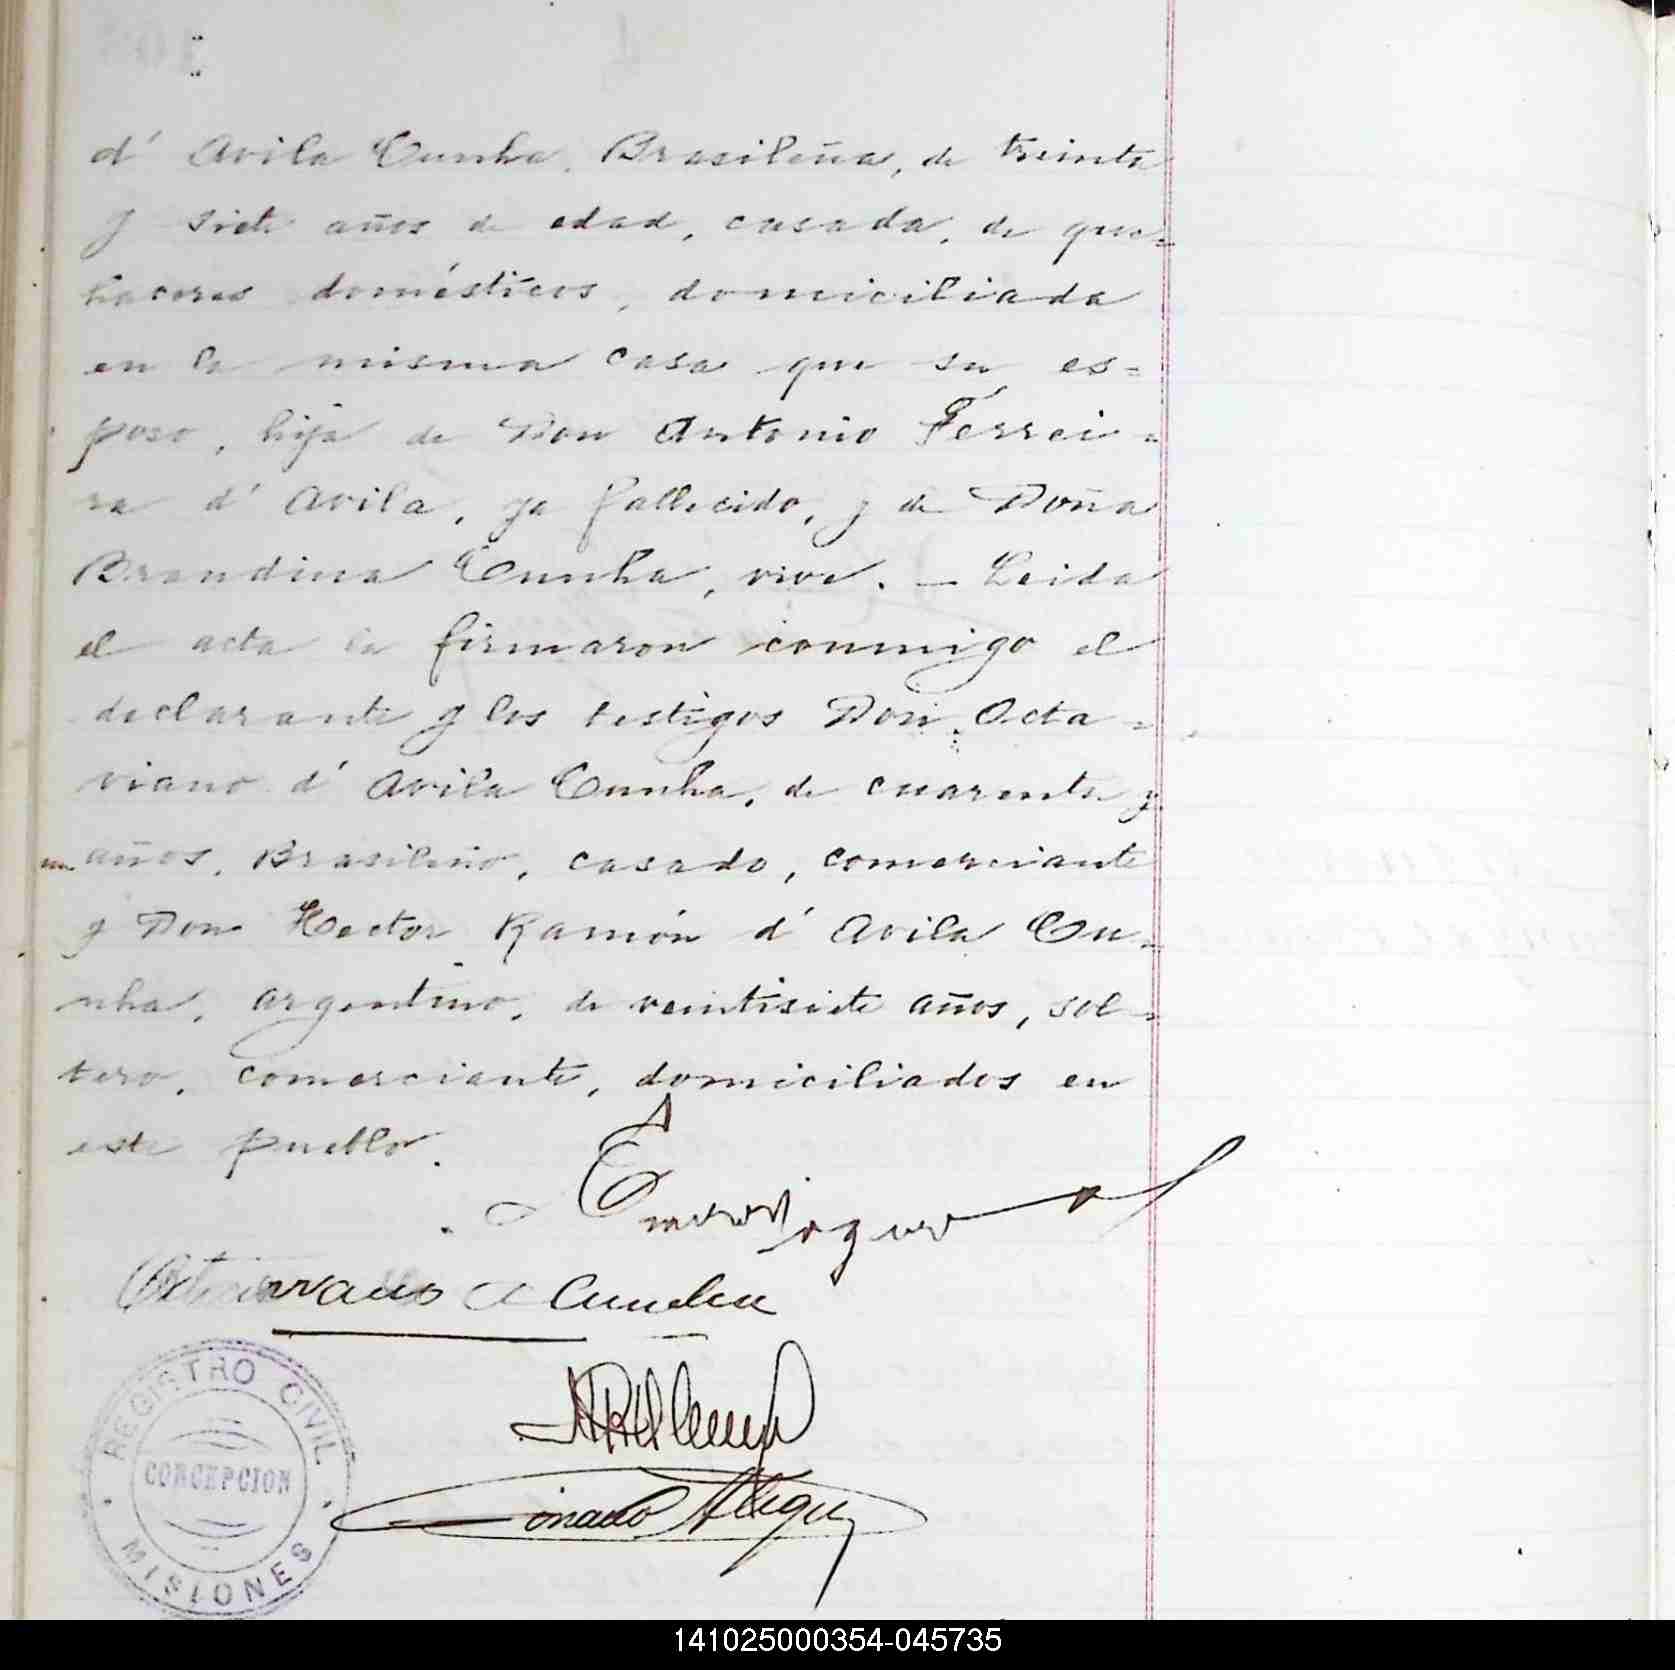 d' Avila Cunha, Brasileña, de treinta
y siete años de edad, casada, de que=
haceres domésticos, domiciliada
en la misma casa que su es=
poso, hija de Don Antonio Ferrei=
ra d' Avila, ya fallecido, y de Doña
Brandina Cunha, vive. — Leida
el acta la firmaron conmigo el
declarante y los testigos Don Octa=
viano d' Avila Cunha, de cuarenta y
un años, Brasileño, casado, comerciante
y Don Hector Ramón d' Avila Cu=
nha, argentino, de veintisiete años, sol=
tero, comerciante, domiciliados en
este pueblo.
Cunha
REGISTRO CIVIL
CONCEPCION
MISIONES
141025000354-045735